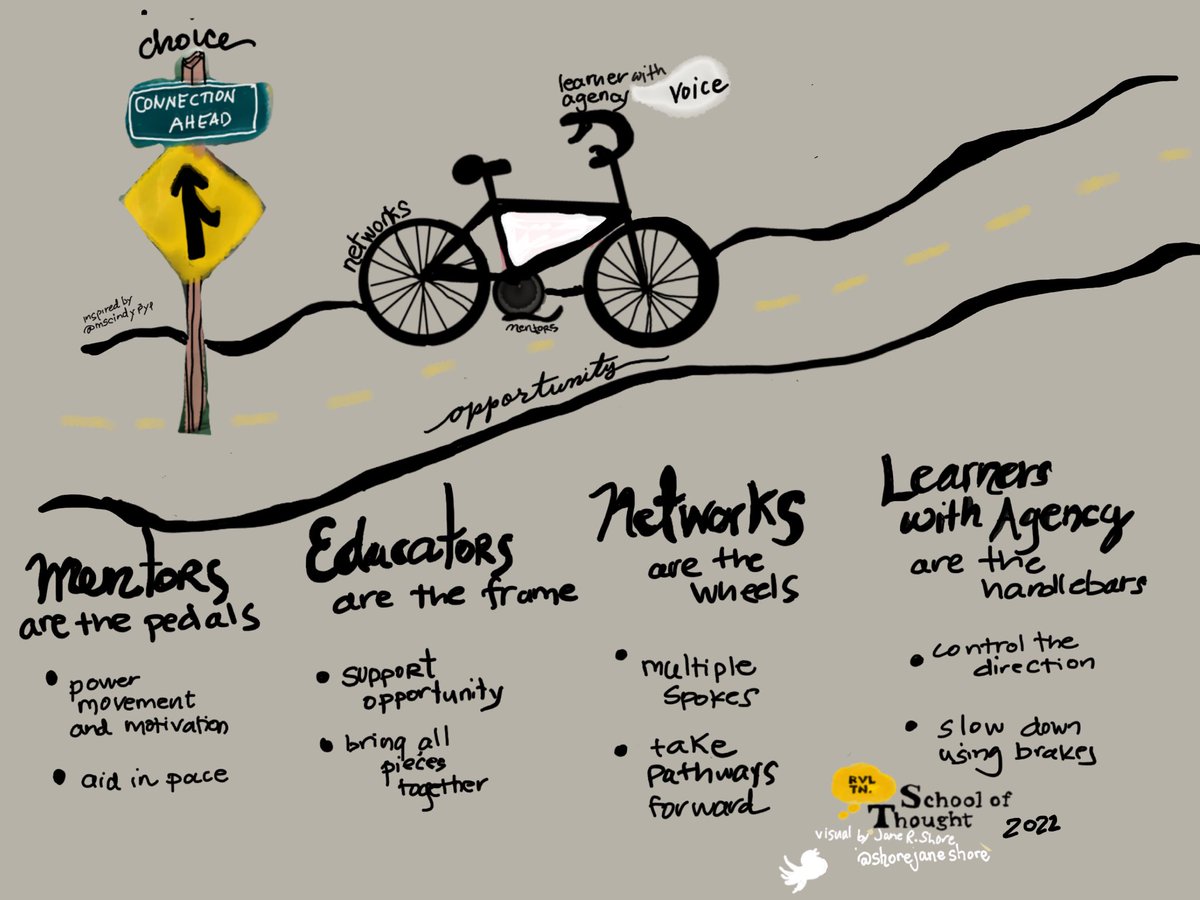 choice
CONNECTION
AHEAD
learner with
agency
voice
networks
mentors
inspired by
opportunity
Mentors
are the pedals
• power
movement
and motivation
• aid in pace
Educators
are the frame
• support
opportunity
• bring all
pieces
together
Networks
are the
wheels
• multiple
spokes
• take
pathways
forward
Learners
with Agency
are the
handlebars
• control the
direction
• slow down
using brakes
RVL
TN.
School of
Thought
2022
visual by Jane R. Shore
@shorejaneshore